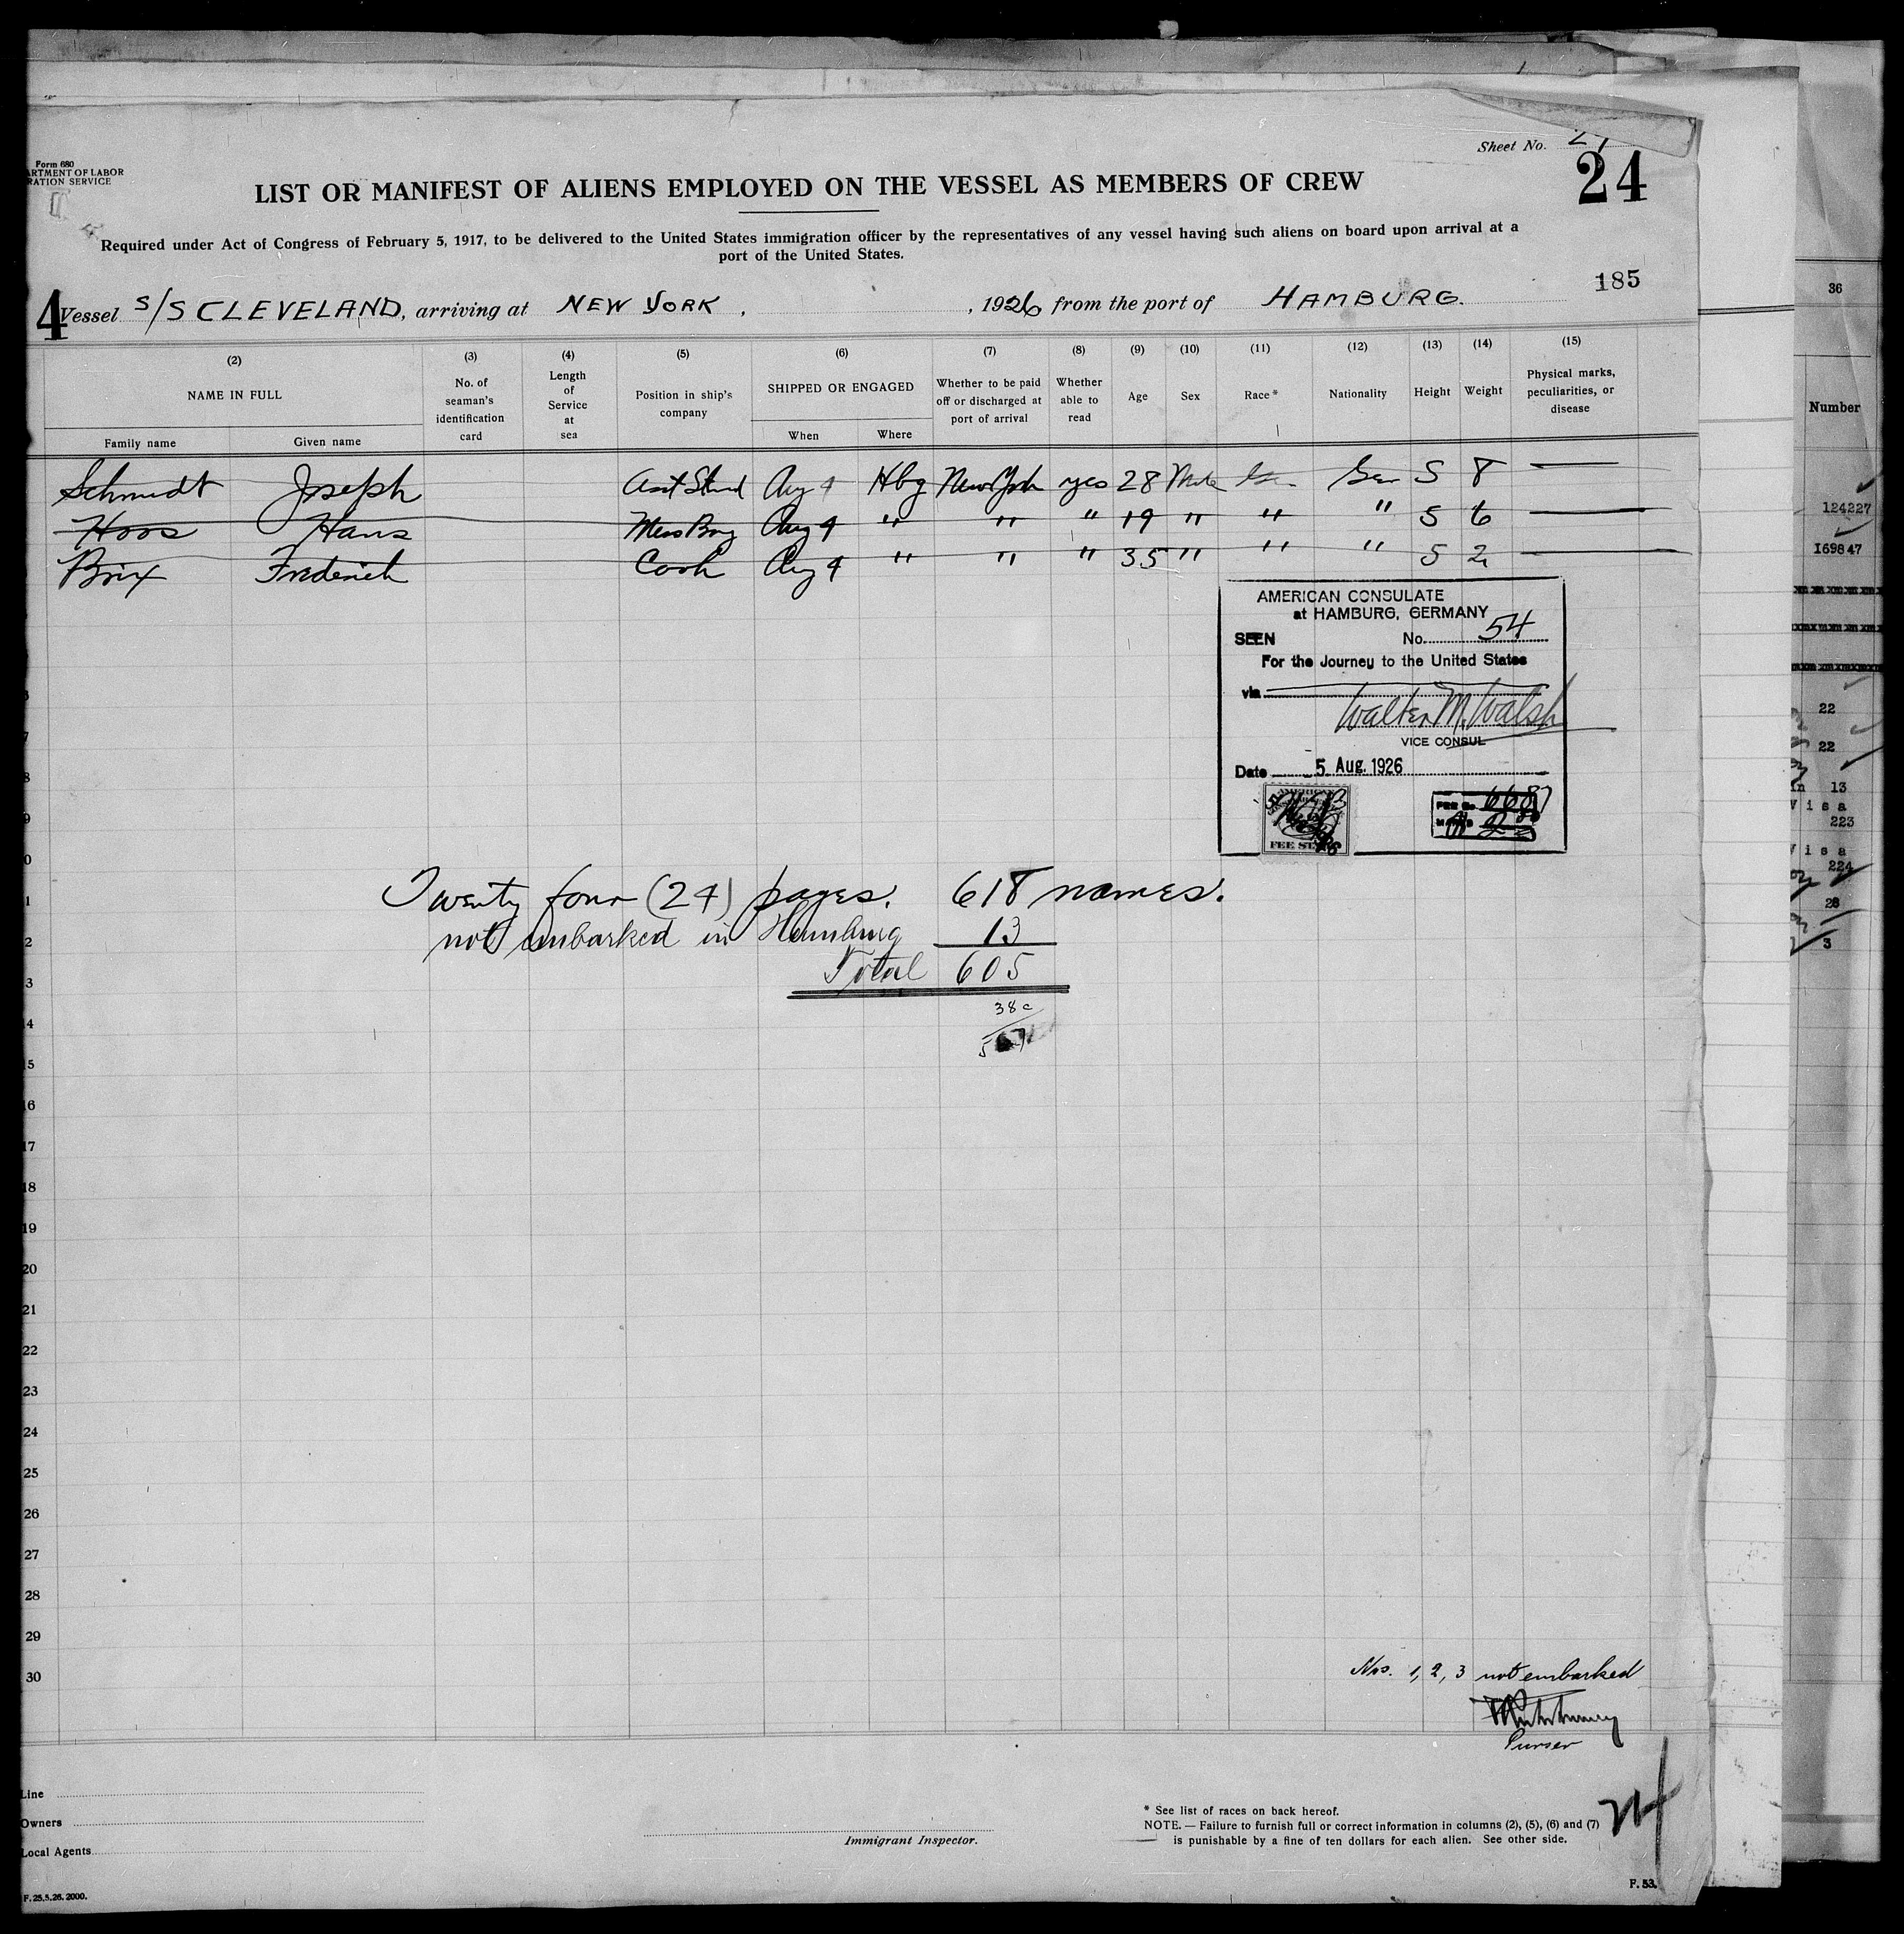 Form 680
ARTMENT OF LABOR
RATION SERVICE
Sheet No.
24
LIST OR MANIFEST OF ALIENS EMPLOYED ON THE VESSEL AS MEMBERS OF CREW
Required under Act of Congress of February 5, 1917, to be delivered to the United States immigration officer by the representatives of any vessel having such aliens on board upon arrival at a
port of the United States.
185
4
Vessel S/S CLEVELAND, arriving at NEW YORK, 1926 from the port of HAMBURG.
(2) (3) (4) (5) (6) (7) (8) (9) (10) (11) (12) (13) (14) (15)
NAME IN FULL
Family name Given name
No. of seaman's identification card
Length of Service at sea
Position in ship's company
SHIPPED OR ENGAGED
When Where
Whether to be paid off or discharged at port of arrival
Whether able to read
Age
Sex
Race*
Nationality
Height
Weight
Physical marks, peculiarities, or disease
Schmidt Joseph Aug 4 Hbg New York yes 28 Male Ger 5 8 —
Hoos Hans Mess Boy Aug 4 " " " 19 " " " 5 6 —
Brix Frederick Cook Aug 4 " " " 35 " " " 5 2 —
AMERICAN CONSULATE
at HAMBURG, GERMANY
SEEN No. 54
For the Journey to the United States
via
Walter M. Walsh
VICE CONSUL
Date 5 Aug. 1926
Twenty four (24) pages. 618 names.
not embarked in Hamburg 13
Total 605
38c
10
11
12
13
14
15
16
17
18
19
20
21
22
23
24
25
26
27
28
29
30
Nos. 1, 2, 3 not embarked
Purser
Line
Owners
Local Agents
Immigrant Inspector.
* See list of races on back hereof.
NOTE. — Failure to furnish full or correct information in columns (2), (5), (6) and (7)
is punishable by a fine of ten dollars for each alien. See other side.
F. 25.5.26. 2000.
F. 53.
36
Number
124227
169847
22
22
13
Visa
223
Visa
224
28
3